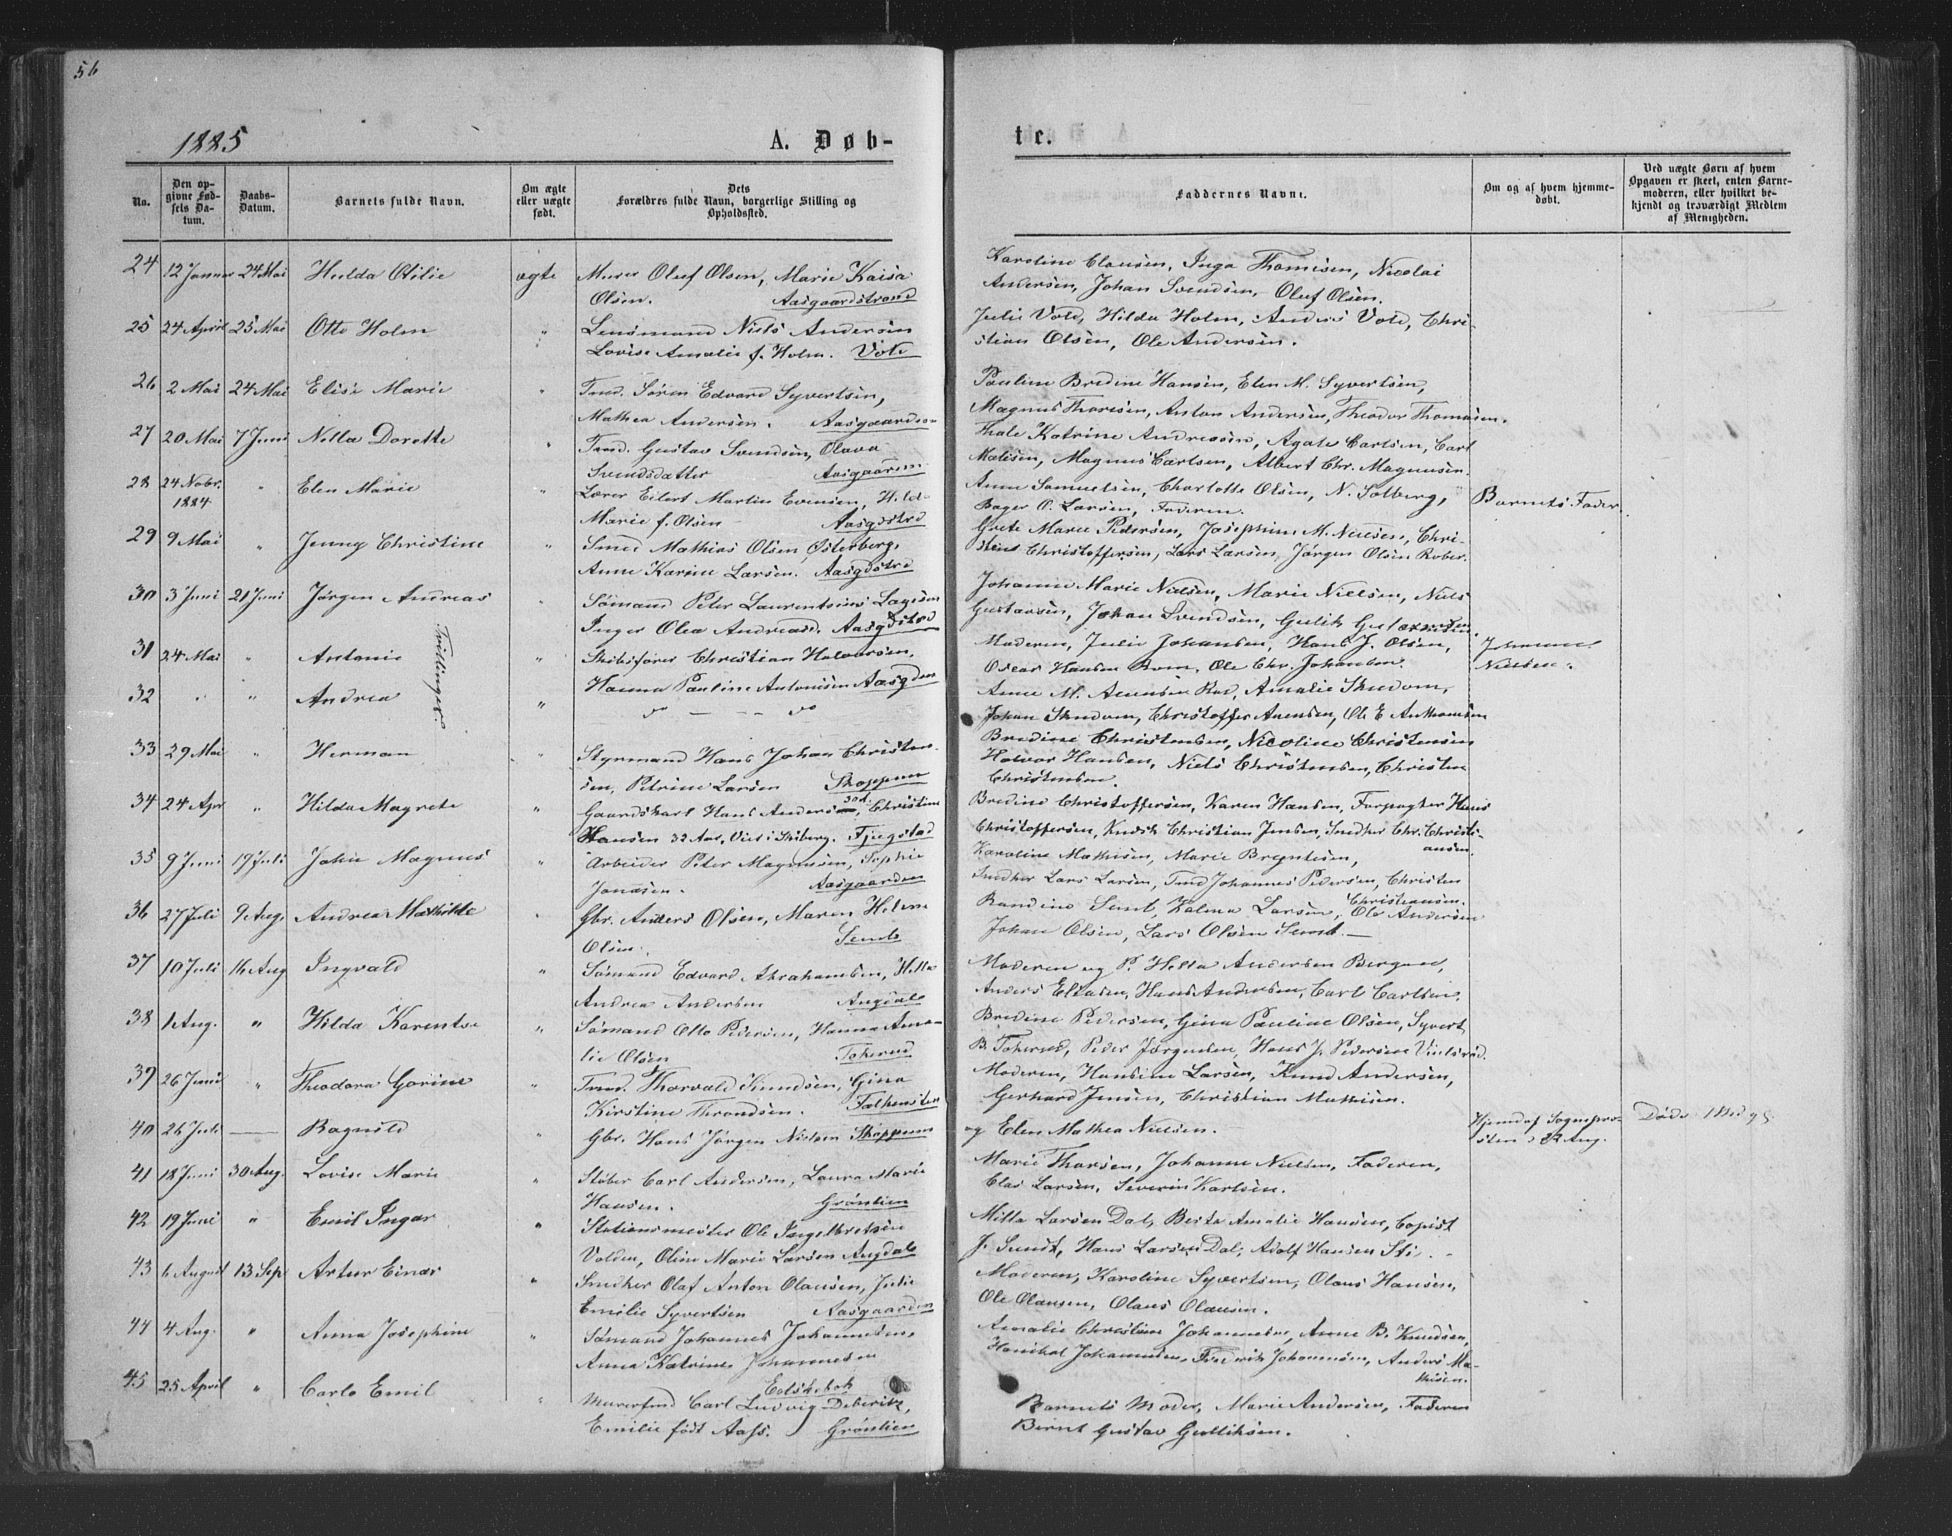 56
1885
A. Døb-
No.
Den op-
givne Fød-
sels Da-
tum.
Daabs-
Datum.
Barnets fulde Navn.
Om ægte
eller uægte
født.
Dets
Forældres fulde Navn, borgerlige Stilling og
Opholdssted.
24 12 Januar 24 Mai Hulda Otilie ægte Murer Oluf Olsen, Marie Kaisa
Olsen. Aasgaardstrand
25 24 April 25 Mai Otto Holm " Lensmand Niels Andersen
Lovise Amalie f. Holm. Vold
26 2 Mai 24 Mai Elise Marie " Tmd. Søren Edvard Syvertsen,
Mathea Andersen. Aasgaarden
27 20 Mai 7 Juni Nilla Dorette " Tmd. Gustav Svendsen, Olava
Svendsdatter
28 24 Novbr. " Elen Marie " Lærer Eilert Martin Evensen,
1884 Marie f. Olsen Aasgdstrd
29 9 Mai " Jenny Christine " Smed Mathias Olsen Østerberg,
Anne Karine Larsen. Aasgdstrd
30 3 Juni 21 Juni Jørgen Andreas " Sømand Peter Laurentsius
Inger Olea Andreasd. Aasgdstrd
31 24 Mai " Antonie Tvillinger. " Skibsfører Christian Halvorsen,
Hanna Pauline Antonisen Aasgden
32 " " Andrea " " — - - "
33 29 Mai " Herman " Styrmand Hans Johan Christen-
sen, Petrine Larsen Skoppum
34 24 Apr " Hilda Magrete " Gaardskarl Hans Anderssen, Christine
Hansen 32 Aar, Viet i Skiberg. Fjugstad
35 9 Juni 19 Juli John Magnus " Arbeider Peter Magnusen, Sophie
Jonasen. Aasgaarden
36 27 Juli 9 Aug. Andrea Mathilde " Gbr. Anders Olsen, Maren Helene
Olsen. Semb
37 10 Juli 16 Aug Ingvald " Sømand Edvard Abrahamsen, Hella
Andrea Andersen Augdale
38 1 Aug. " Hilda Karentse " Sømand Otto Pedersen, Hanna Ama-
lie Olsen Tokerud
39 26 Juni " Theodora Gorine " Tmd. Thorvald Knudsen, Gina
Kirstine Throndsen. Falkensten
40 26 Juli — Ragnild " Gbr. Hans Jørgen Nielsen Skoppum
41 18 Juni 30 Aug. Lovise Marie " Støber Carl Andersen, Laura Marie
Hansen. Grønlien
42 19 Juni " Emil Ingar " Stationsmester Ole Ingebretsen
Volden, Oline Marie Larsen Augdale
43 6 August 13 Sep Artur Einar " Snedker Olaf Anton Olausen, Julie
Emilie Syvertsen Aasgaarden
44 4 Aug. " Anna Josephine " Sømand Johannes Johannesen,
Anna Katrine Johannesen
45 25 April " Carlo Emil " Murerfmd Carl Ludvig Deberitz,
Emilie født Aass. Grønlien
te.
Faddernes Navne.
Om og af hvem hjemme-
døbt.
Ved uægte Børn af hvem
Opgaven er skeet, enten Barne-
moderen, eller hvilket be-
kjendt og troværdigt Medlem
af Menigheden.
Karoline Clausen, Inga Thomisen, Nicolai
Andersen, Johan Svendsen, Oluf Olsen.
Julie Vold, Hilda Holm, Anders Vold, Chri-
stian Olsen, Ole Andersen.
Pauline Bredine Hansen, Elen M. Syvertsen,
Magnus Thoresen, Anton Andersen, Theodor Thomasen.
Thale Katrine Andresen, Agate Carlsen, Carl
Matisen, Magnus Carlsen, Albert Chr. Magnusen.
Anne Samuelsen, Charlotte Olsen, N. Solberg, Barnets Fader.
Bager O. Larsen, Faderen.
Grete Marie Pedersen, Josephine M. Nielsen, Chri-
stens Christoffersen, Lars Larsen, Jørgen Olsen
Johanne Marie Nielsen, Marie Nielsen, Niels
Gustavsen, Johan Svendsen, Gulik
Moderen, Julie Johansen, Hans J. Olsen, Johanne
Oscar Hansen Rom, Ole Chr. Johansen. Nielsen.
Anne M. Amalie Skudom,
Johan Skudom, Christoffer Ole E.
Bredine Christensen, Nicoline Christensen
Halvor Hansen, Niels Christensen, Christen
Christensen.
Bredine Christoffersen, Karen Hansen, Forpagter Hans
Christoffersen, Kudsk Christian Jensen, Snedker Chr. Christi-
ansen.
Karoline Mathisen, Marie Bryntesen,
Snedker Lars Larsen, Tmd Johannes Pedersen, Christen
Christiansen.
Randine Semb, Kalma Larsen, Ole Andersen
Johan Olsen, Lars Olsen Semb. —
Moderen og P. Hella Andersen Bergan,
Anders Eliasen, Hans Andersen, Carl Carlsen.
Bredine Pedersen, Gina Pauline Olsen, Syvert
B. Tokerud, Peder Jørgensen, Hans J. Pedersen
Moderen, Hansine Larsen, Knud Andersen,
Gerhard Jensen, Christian Mathisen.
og Elen Mathea Nielsen. Hjemd af Sognepre-
sten Aug. Døde
Marie Thorsen, Johanne Nielsen, Faderen,
Claus Larsen, Severin Karlsen.
Milla Larsen Dal, Berta Amalie Hansen, Copist
J. Sundt, Hans Larsen Dal, Adolf Hansen
Moderen, Karoline Syvertsen, Olaus Hansen,
Ole Olausen, Olaus Olausen.
Amalie Christine Johannesen, Anne B. Knudsen,
Hanibal Johannesen, Fredrik Johannesen, Anders Ma-
thisen.
Barnets Moder, Marie Andersen, Faderen
Bernt Gustav Gulliksen.